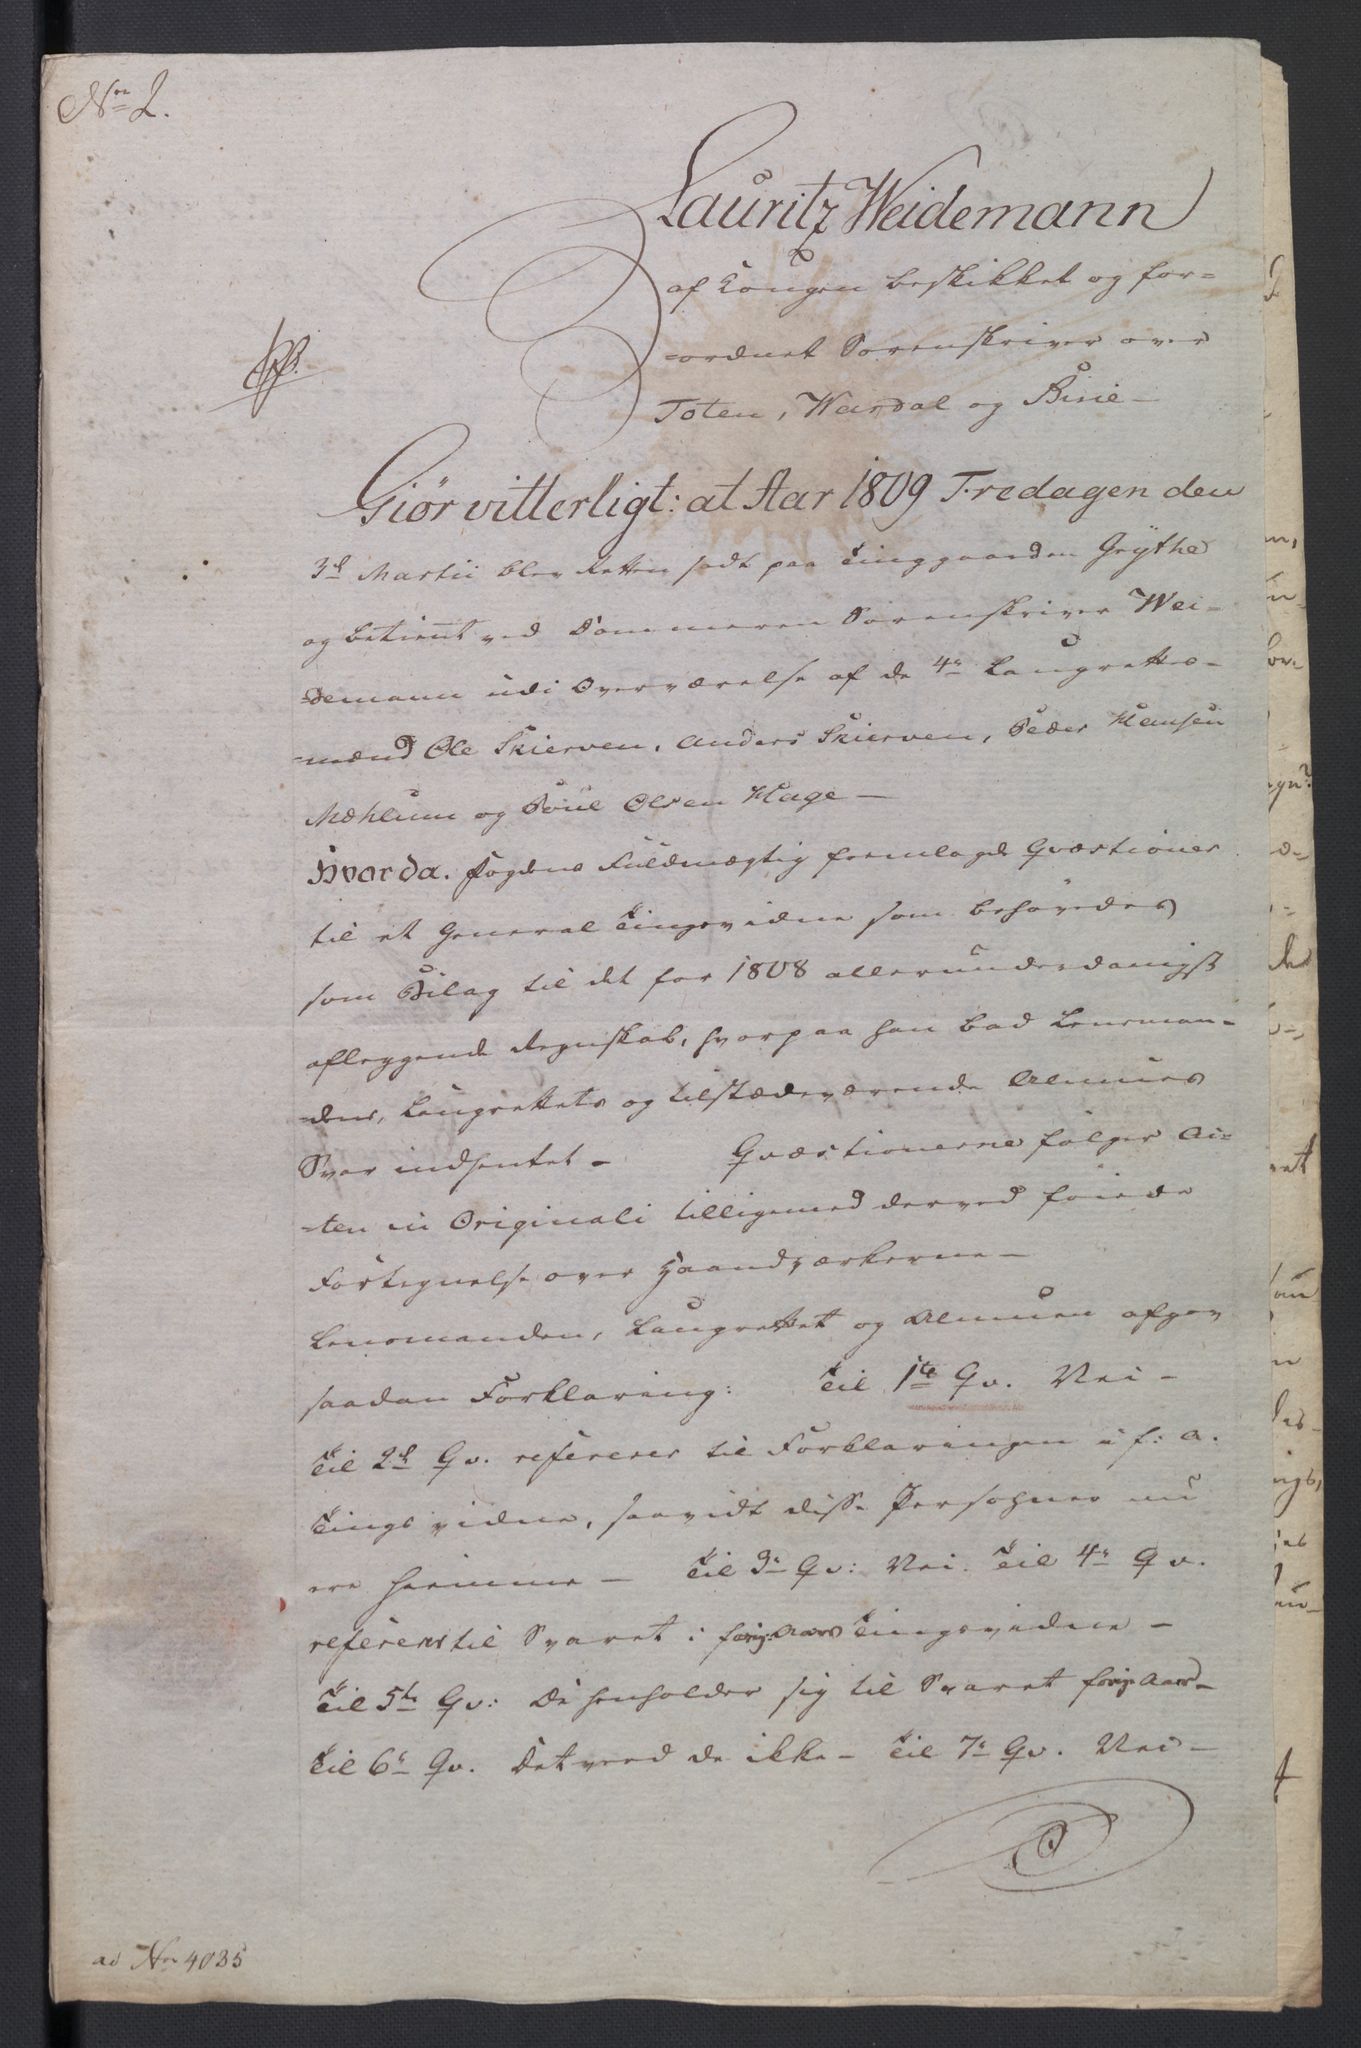 No 2.
Lauritz Weidemann
af Kongen beskikket og for=
=ordnet Sorenskriver over
Toten, Wardal og Birie —
Giør vitterligt: at Aar 1809 Fredagen den
3d Martii blev Retten sadt paa Tinggaarden Grythe
og betient ved Dommeren Sorenskriver Wei=
=demann udi Overværelse af de 4re Laugrettes=
=mænd Ole Skierven, Anders Skierven, Peder Hansen
Mæhlum og Poul Olsen Hage —
Hvorda. Fogdens Fuldmægtig fremlagde Qvæstioner
til et General Tingsvidne som behøvedes
som Bilag til det for 1808 allerunderdanigst
aflæggende Regnskab, hvorpaa han bad Lensman=
=dens, Laugrettets og tilstædeværende Almues
Svar indhentet — Qvæstionerne følger Ac=
=ten in Originali tilligemed derved føiede
Fortegnelse over Haandværkerne —
Lensmanden, Laugrettet og Almuen afgav
saadan Forklaring: Til 1te Qv. Nei —
Til 2d Qv. refereres til Forklaringen i f: A.
Tingsvidne, saavidt disse Persohner nu
ere hiemme — Til 3e Qv: Nei. Til 4e Qv.
referers til Svaret i forig: Aars Tingsvidne —
Til 5te Qv: De henholder sig til Svaret forige Aars —
Til 6e Qv. Det veed de ikke — Til 7e Qv. Nei —
ad No 4035